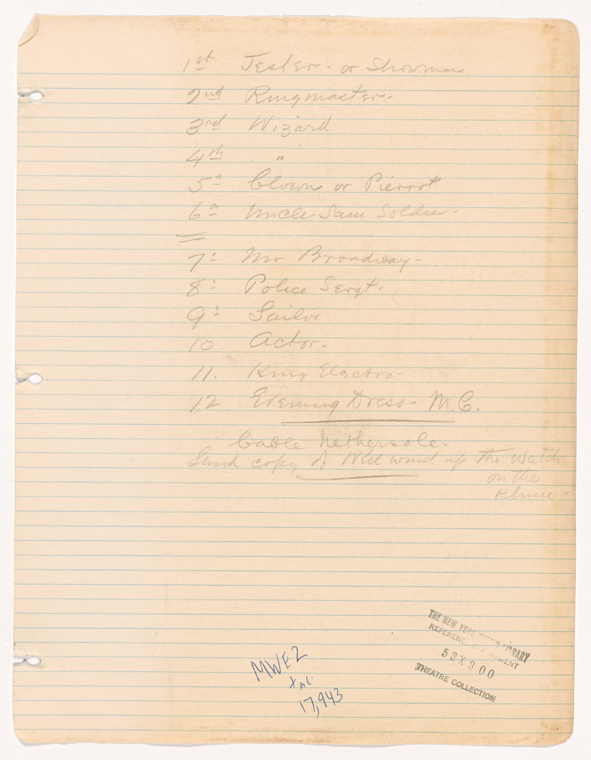 1st Jester - or Showman
2nd Ringmaster -
3rd Wizard
4th "
5th Clown or Pierrot
6th Uncle Sam Soldier -
7th Mr Broadway -
8th Police Sergt -
9th Sailor
10 Actor -
11. King Electro -
12 Evening Dress - M.C.
Cable Nethersole -
Send copy of We'll wind up the Watch
on the
Rhine -
THE NEW YORK PUBLIC LIBRARY
REFERENCE DEPARTMENT
53X300
THEATRE COLLECTION
MWEZ
+ n.c.
17,943